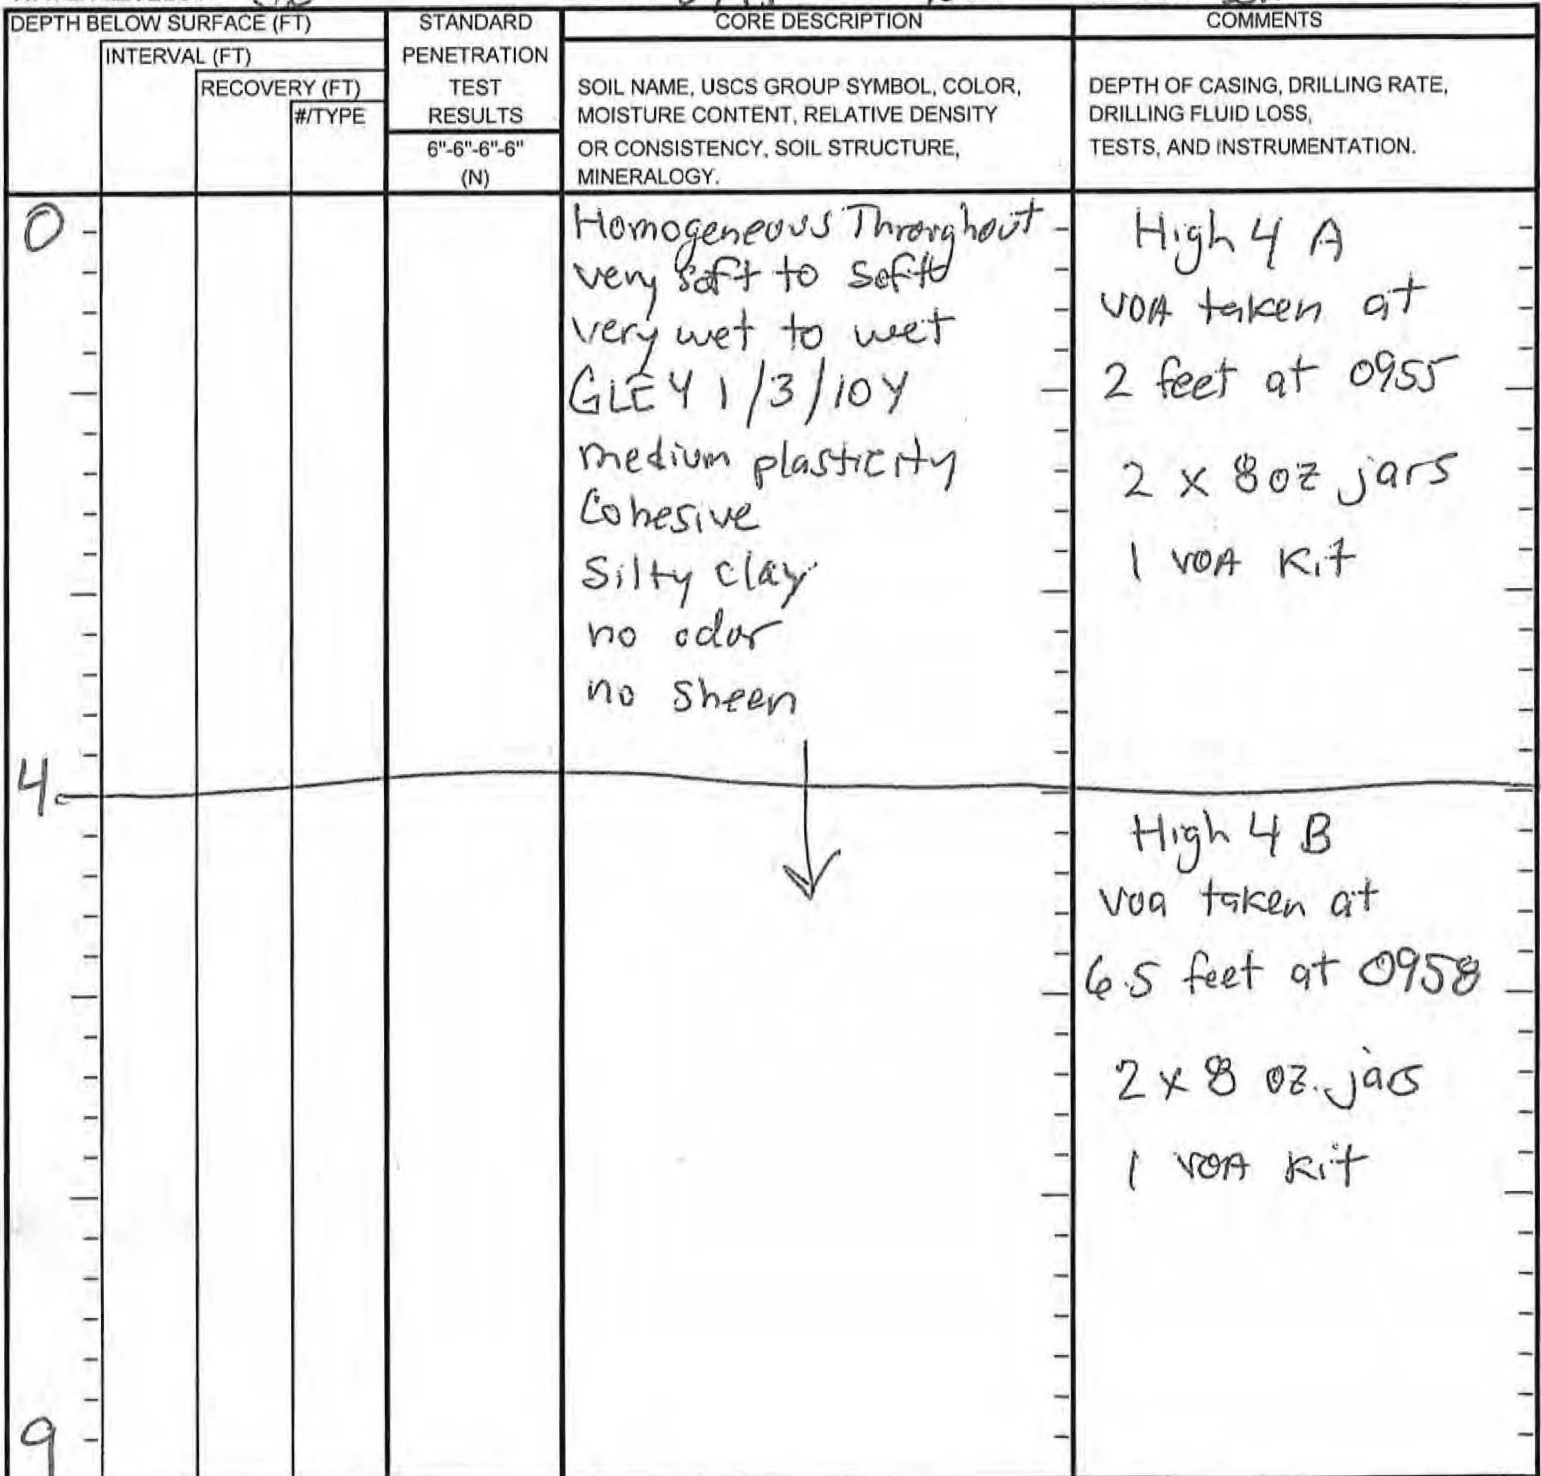 DEPTH BELOW SURFACE (FT)
INTERVAL (FT)
RECOVERY (FT)
#/TYPE
STANDARD
PENETRATION
TEST
RESULTS
6"-6"-6"-6"
(N)
CORE DESCRIPTION
SOIL NAME, USCS GROUP SYMBOL, COLOR,
MOISTURE CONTENT, RELATIVE DENSITY
OR CONSISTENCY, SOIL STRUCTURE,
MINERALOGY.
COMMENTS
DEPTH OF CASING, DRILLING RATE,
DRILLING FLUID LOSS,
TESTS, AND INSTRUMENTATION.
0
Homogeneous Throughout
very soft to soft
very wet to wet
GLEY 1/3/10Y
medium plasticity
Cohesive
Silty clay
no odor
no sheen
High 4 A
VOA taken at
2 feet at 0955
2 x 8oz jars
1 VOA Kit
4
High 4 B
voa taken at
6.5 feet at 0958
2 x 8 oz. jars
1 VOA Kit
9